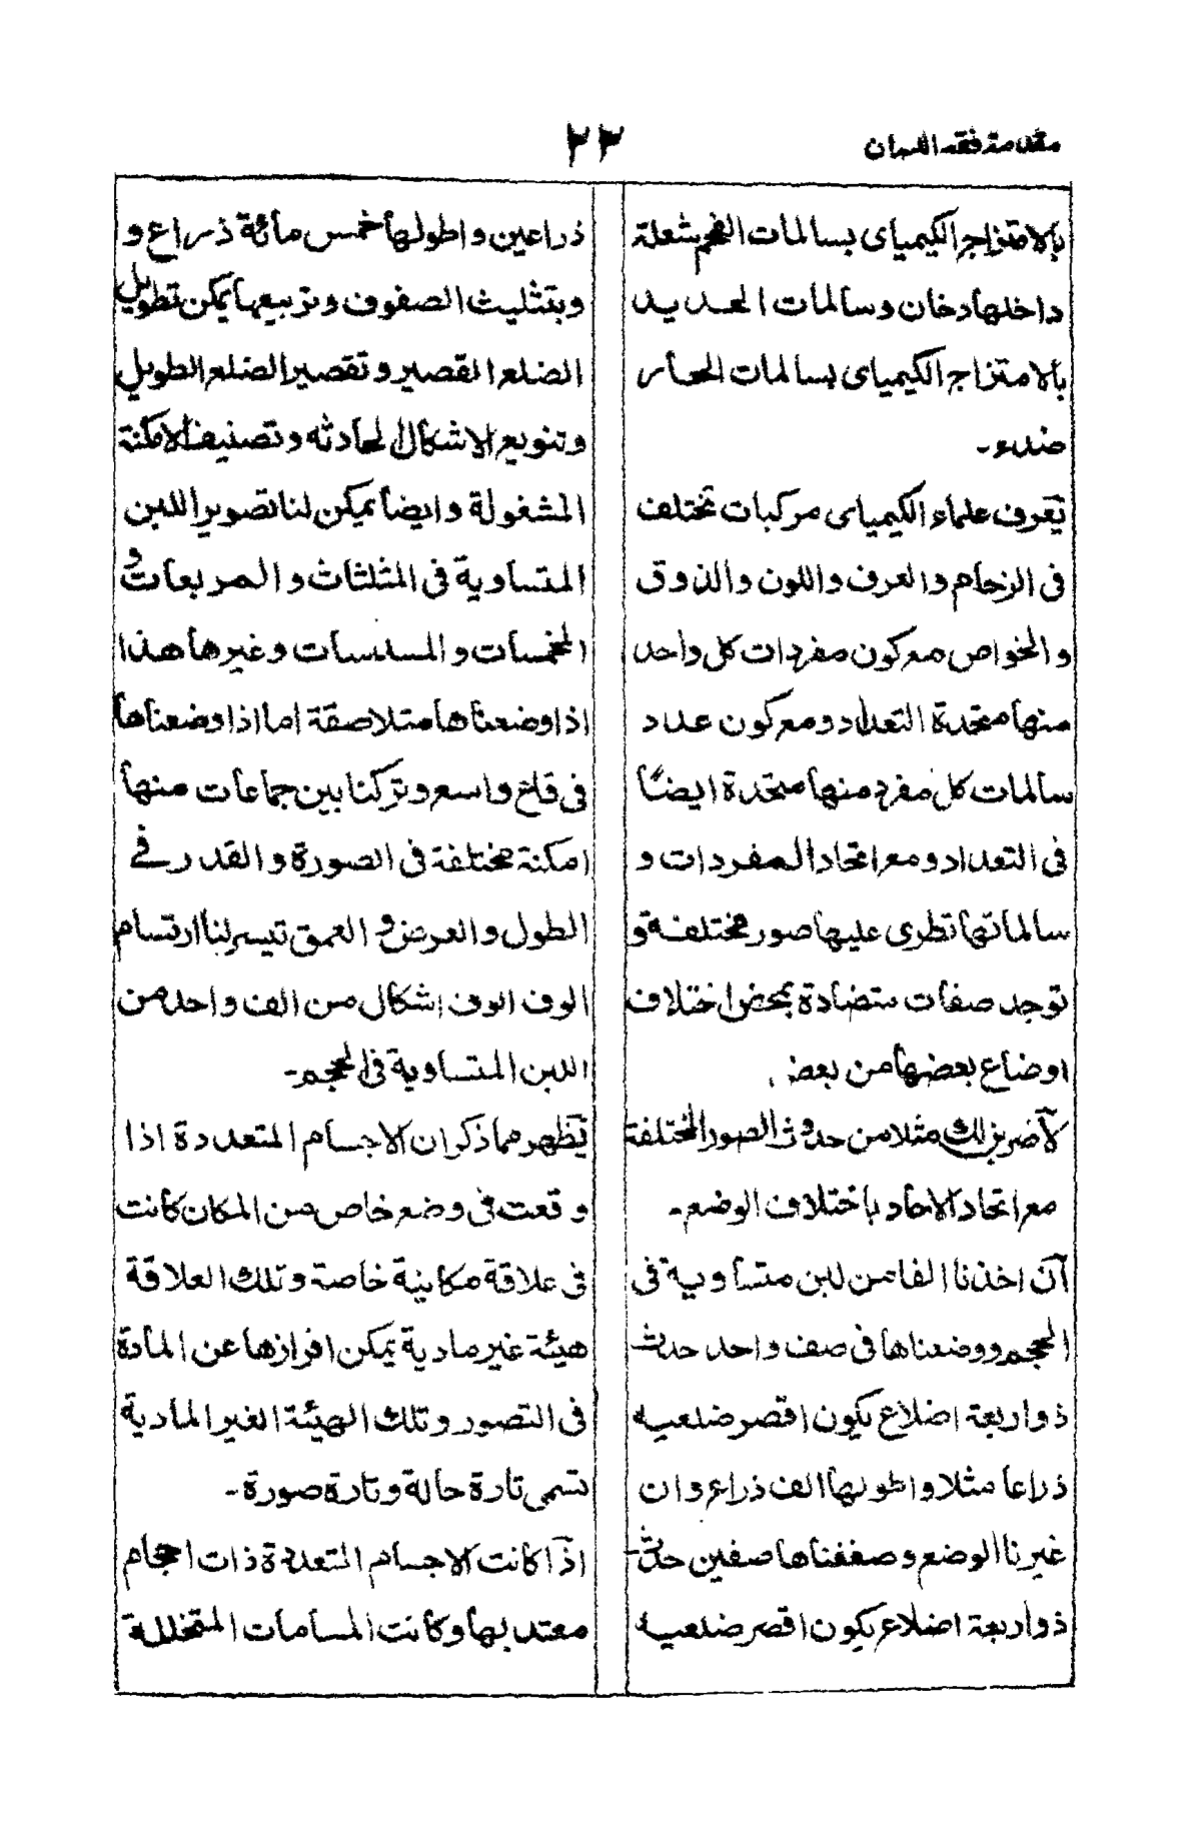 مقدمة فقه اللسان
٢٣
بالامتزاج الكيمياى بسالمات الفحم شعلة
داخلها دخان وسالمات الحديد
بالامتزاج الكيمياى بسالمات الحار
صدء۔
تعرف علماء الكيمياى مركبات تختلف
فى الزحام والعرف واللون والذوق
والخواص مع كون مفردات كل واحد
منها متحدة التعداد ومع كون عداد
سالمات كل مفرد منها متحدة ايضًا
فى التعداد ومع اتحاد المفردات و
سالماتها تطرى عليها صور مختلفة و
توجد صفات متضادة بمحض اختلاف
اوضاع بعضها من بعض
لآضربن لك مثلا من حدوث الصور المختلفة
مع اتحاد الاحاد باختلاف الوضع۔
آن اخذنا الفا من لبن متساوية فى
الحجم ووضعناها فى صف واحد حدث
ذو اربعة اضلاع يكون اقصر ضلعيه
ذراعا مثلا واطولها الف ذراع وان
غيرنا الوضع وصففناها صفين حدث
ذو اربعة اضلاع يكون اقصر ضلعيه
ذراعين واطولها خمس مائة ذراع و
وبتثليث الصفوف وتربيعها يمكن تطويل
الضلع القصير وتقصير الضلع الطويل
وتنويع الاشكال لحادثه وتصنيف الامكنة
المشغولة وايضا يمكن لنا تصوير اللبن
المتساوية فى المثلثات والمربعات و
المخمسات والمسدسات وغيرها هذا
اذا وضعناها متلاصقة اما اذا وضعناها
فى قاع واسع وتركنا بين جماعات منها
امكنة مختلفة فى الصورة والقدر فے
الطول والعرض و العمق تيسر لنا ارتسام
الوف الوف اشكال من الف واحد من
اللبن المتساوية فى الحجم۔
تظهر مما ذكر ان الاجسام المتعددة اذا
وقعت فى وضع خاص من المكان كانت
فى علاقة مكانية خاصة وتلك العلاقة
هيئة غير مادية يمكن افرازها عن المادة
فى التصور وتلك الهيئة الغير المادية
تسمى تارة حالة وتارة صورة۔
اذا كانت الاجسام المتعددة ذات احجام
معتد بها وكانت المسامات المتخللة